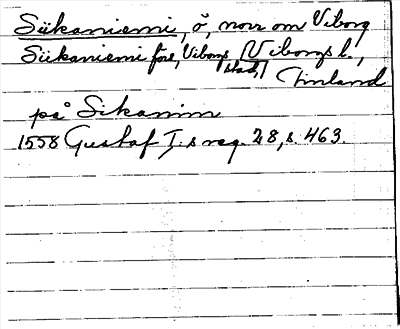 Siikaniemi, ö, norr om Viborg
Siikaniemi förs, Viborgs stad, Viborgs l.,
Finland
på Sikanim
1558 Gustaf I.s reg. 28, s. 463.